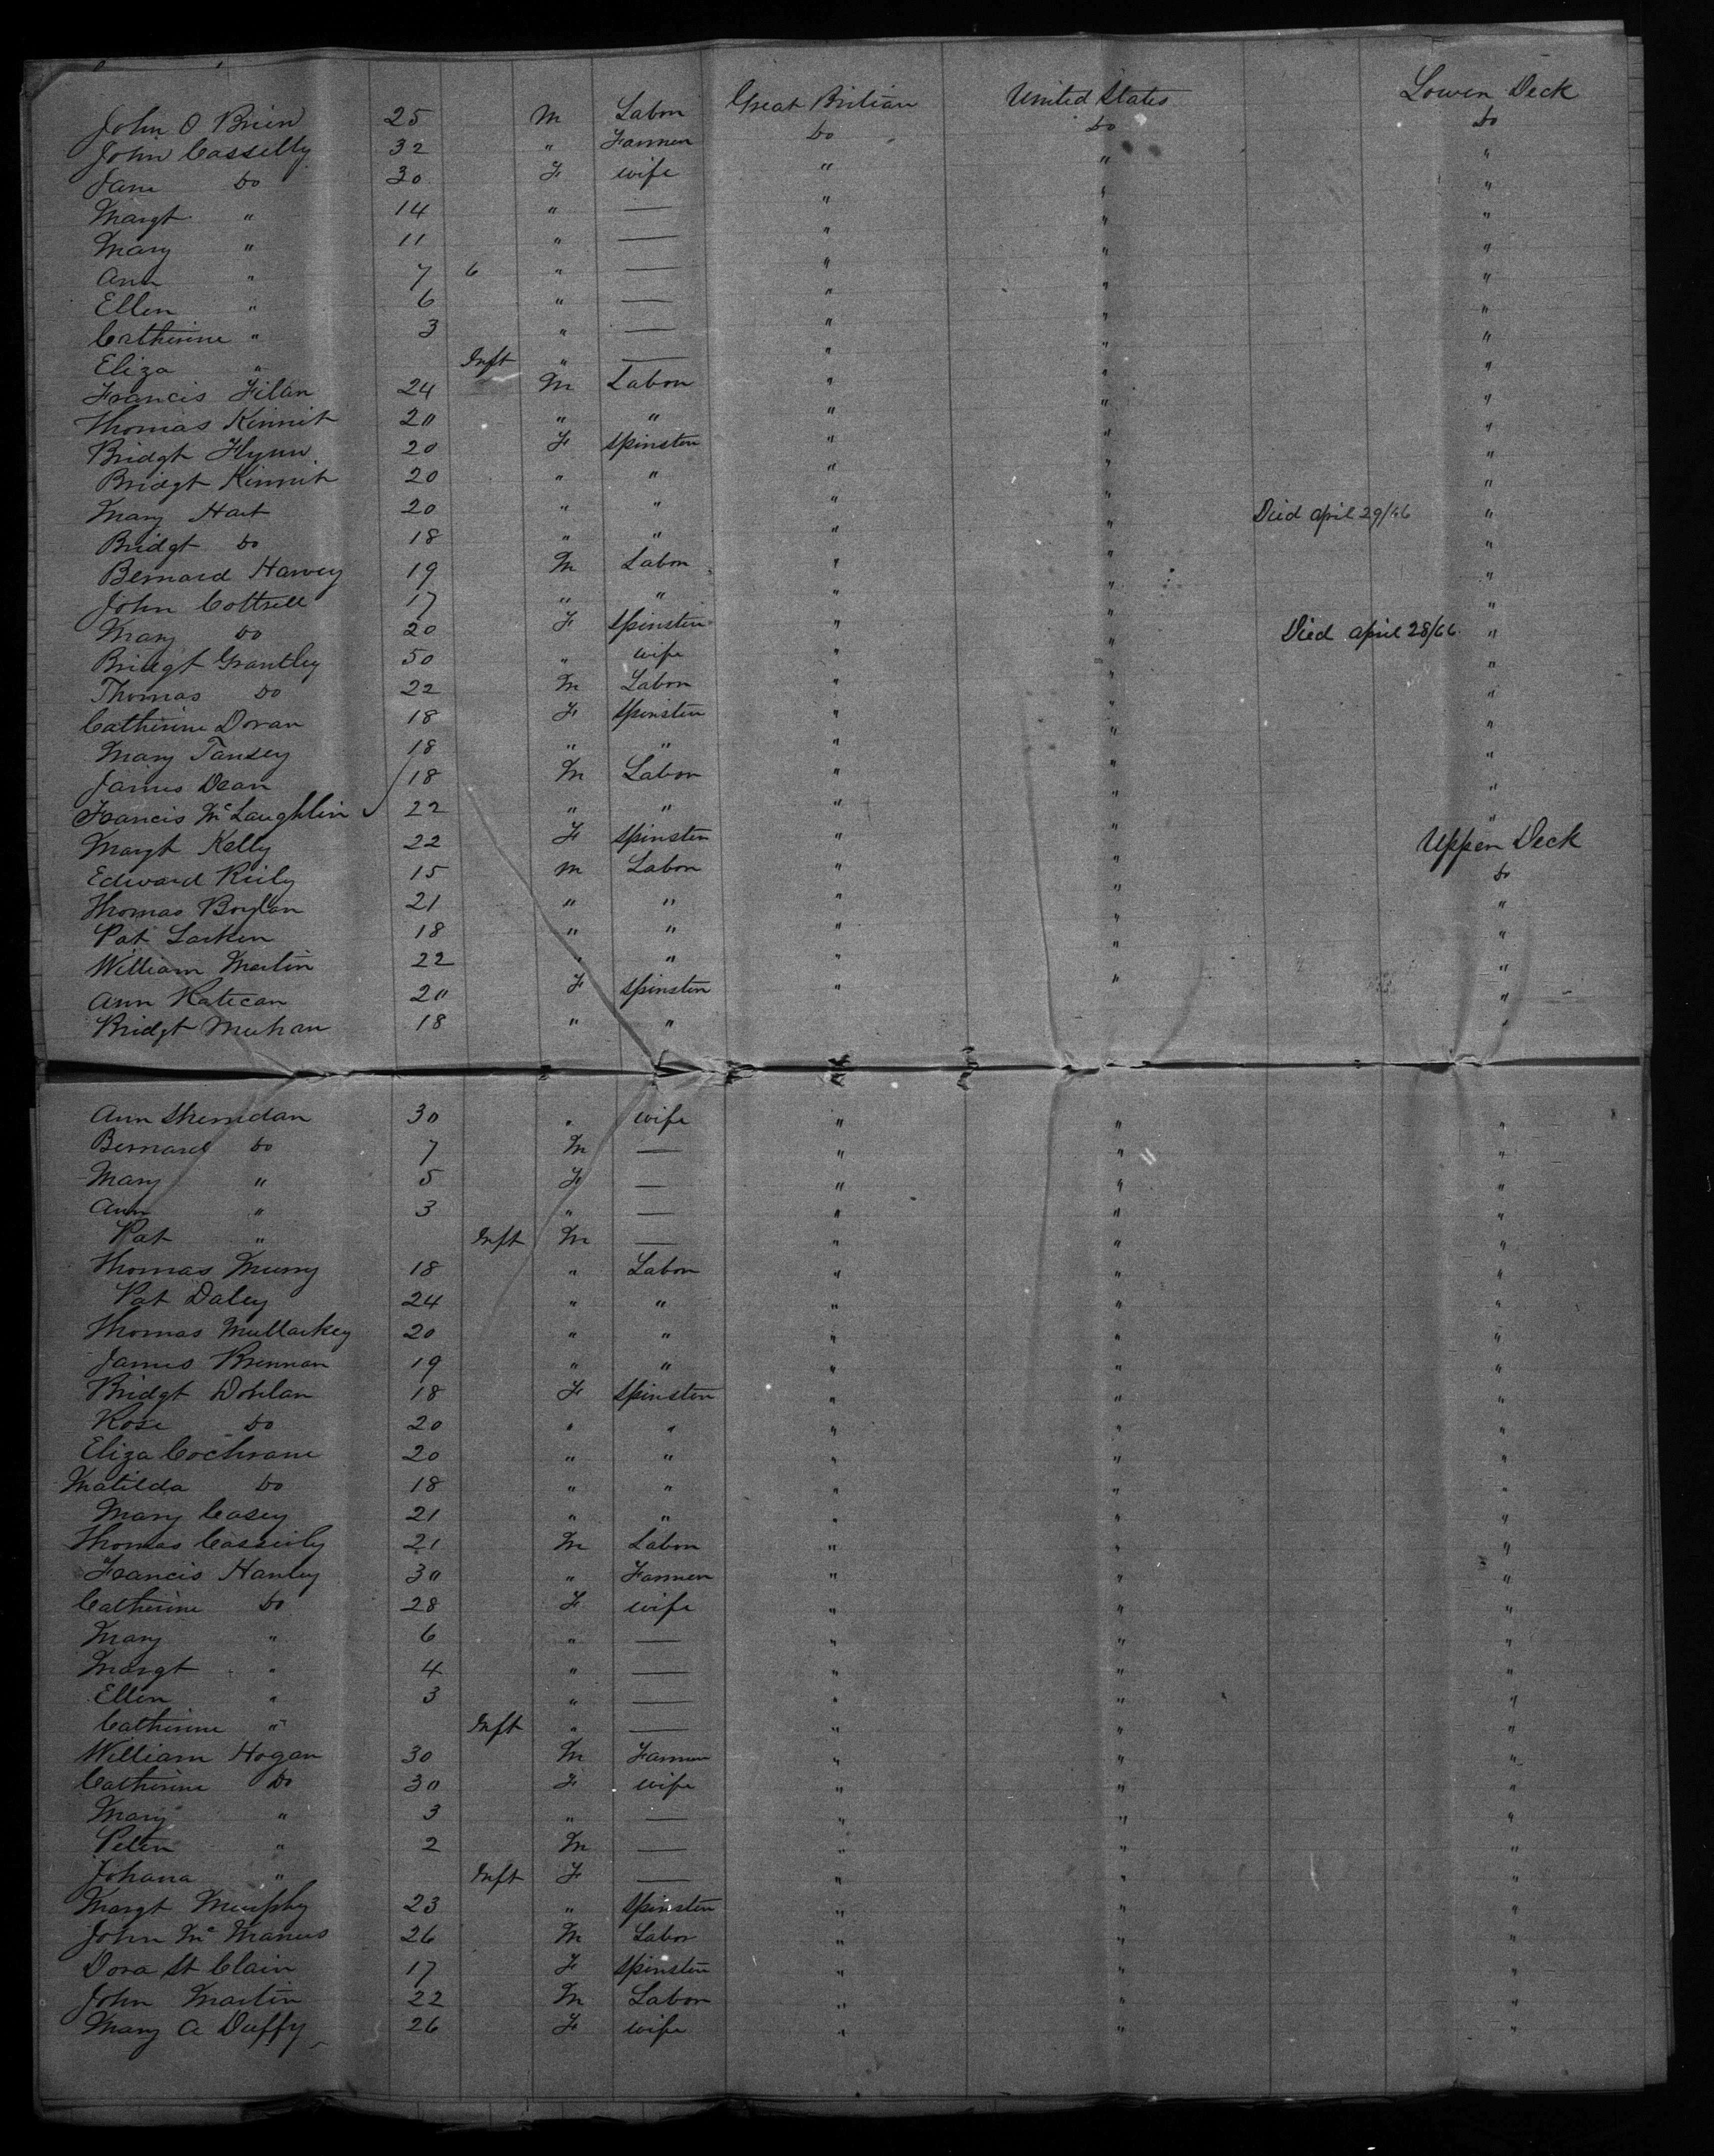 John O Brien 25 M Labor Great Britian United States Lower Deck
John Cassilly 32 " Farmer Do Do Do
Jane Do 30 F wife " " "
Margt " 14 " — " " "
Mary " 11 " — " " "
Ann " 7 6 " — " " "
Ellen " 6 " — " " "
Catherine " 3 " — " " "
Eliza " Inft " — " " "
Francis Filan 24 M Labor " " "
Thomas Kinnit 20 " " " " "
Bridgt Flynn 20 F Spinster " " "
Bridgt Kinnit 20 " " " " "
Mary Hart 20 " " " " Died april 29/66 "
Bridgt Do 18 " " " " "
Bernard Harvey 19 M Labor " " "
John Cottrell 17 " " " " "
Mary Do 20 F Spinster " " Died april 28/66 "
Bridgt Grantley 50 " wife " " "
Thomas Do 22 M Labor " " "
Catherine Doran 18 F Spinster " " "
Mary Tansey 18 " " " " "
James Dean 18 M Labor " " "
Francis Mc Laughlin 22 " " " " "
Margt Kelly 22 F Spinster " " Upper Deck
Edward Reily 15 M Labor " " Do
Thomas Boylan 21 " " " " "
Pat Larken 18 " " " " "
William Martin 22 " " " " "
Ann Hatecan 20 F Spinster " " "
Bridgt Meehan 18 " " "
Ann Sherridan 30 " wife " " "
Bernard Do 7 M — " " "
Mary " 5 F — " " "
Ann " 3 " — " " "
Pat " Inft M — " " "
Thomas Murry 18 " Labor " " "
Pat Daley 24 " " " " "
Thomas Mullarkey 20 " " " " "
James Brennan 19 " " " " "
Bridgt Dohlan 18 F Spinster " " "
Rose Do 20 " " " " "
Eliza Cochrane 20 " " " " "
Matilda Do 18 " " " " "
Mary Casey 21 " " " " "
Thomas Cassidy 21 M Labor " " "
Francis Hanley 30 " Farmer " " "
Catherine Do 28 F wife " " "
Mary " 6 " — " " "
Margt " 4 " — " " "
Ellen " 3 " — " " "
Catherine " Inft " — " " "
William Hogan 30 M Farmer " " "
Catherine Do 30 F wife " " "
Mary " 3 " — " " "
Peter " 2 M — " " "
Johana " Inft F — " " "
Margt Murphy 23 " Spinster " " "
John Mc Manus 26 M Labor " " "
Dora St Clair 17 F Spinster " " "
John Martin 22 M Labor " " "
Mary A Duffy 26 F wife " " "